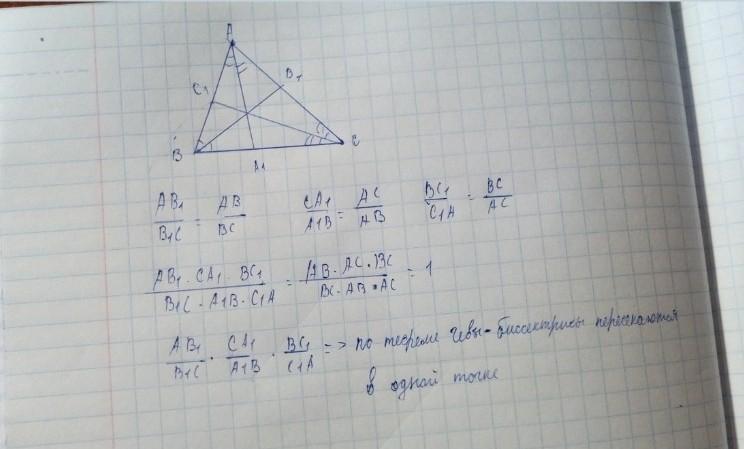 A
B1
C1
B
A1
C
AB1/B1C = AB/BC CA1/A1B = AC/AB BC1/C1A = BC/AC
AB1 · CA1 · BC1/B1C · A1B · C1A = AB · AC · BC/BC · AB · AC = 1
AB1/B1C · CA1/A1B · BC1/C1A => по теореме Чевы - биссектрисы пересекаются
в одной точке